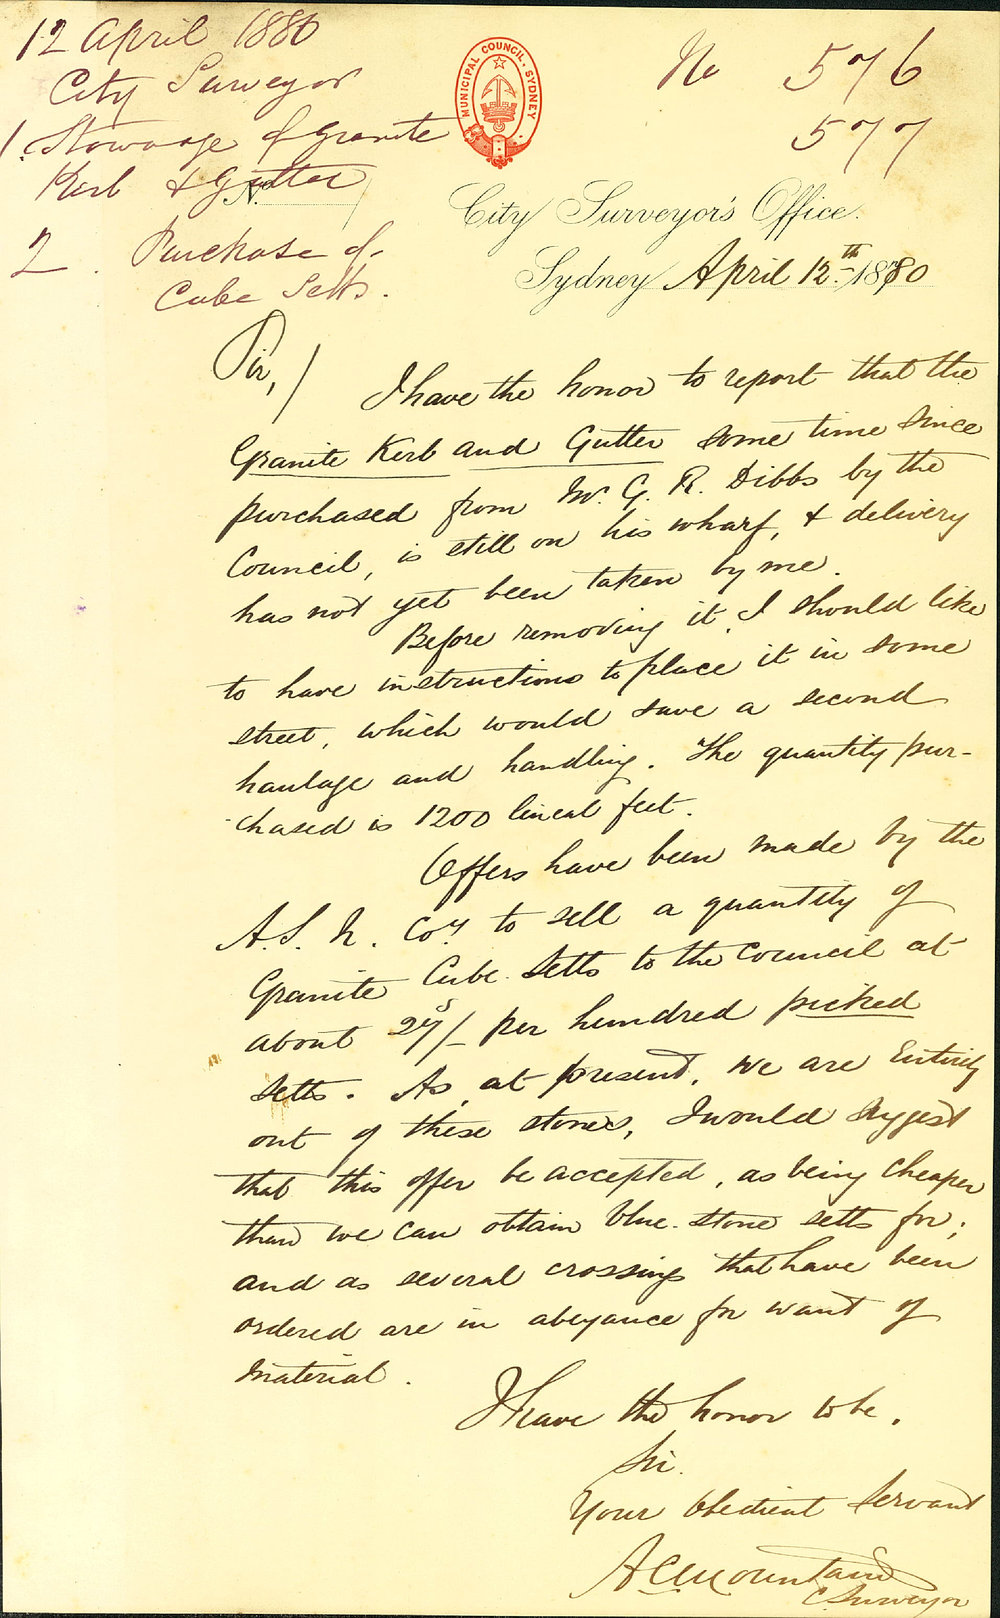 12 April 1880
City Surveyor
1. Stowage of Granite
Kerb & Gutter
2. Purchase of
Cube Setts.
No 576
577
MUNICIPAL COUNCIL. SYDNEY
No.
City Surveyor's Office.
Sydney April 12th 1880
Sir,
I have the honor to report that the
Granite Kerb and Gutter some time since
purchased from Mr. G. R. Dibbs by the
Council, is still on his wharf, & delivery
has not yet been taken by me.
Before removing it, I should like
to have instructions to place it in some
street, which would save a second
haulage and handling. The quantity pur-
chased is 1200 lineal feet.
Offers have been made by the
A. S. N. Coy. to sell a quantity of
Granite Cube Setts to the Council at
about /- per hundred picked
setts. As, at present, we are entirely
out of these stones, I would suggest
that this offer be accepted, as being cheaper
than we can obtain blue-stone setts for;
and as several crossings that have been
ordered are in abeyance for want of
material.
I have the honor to be,
Sir.
Your Obedient Servant
A C Mountain
C Surveyor